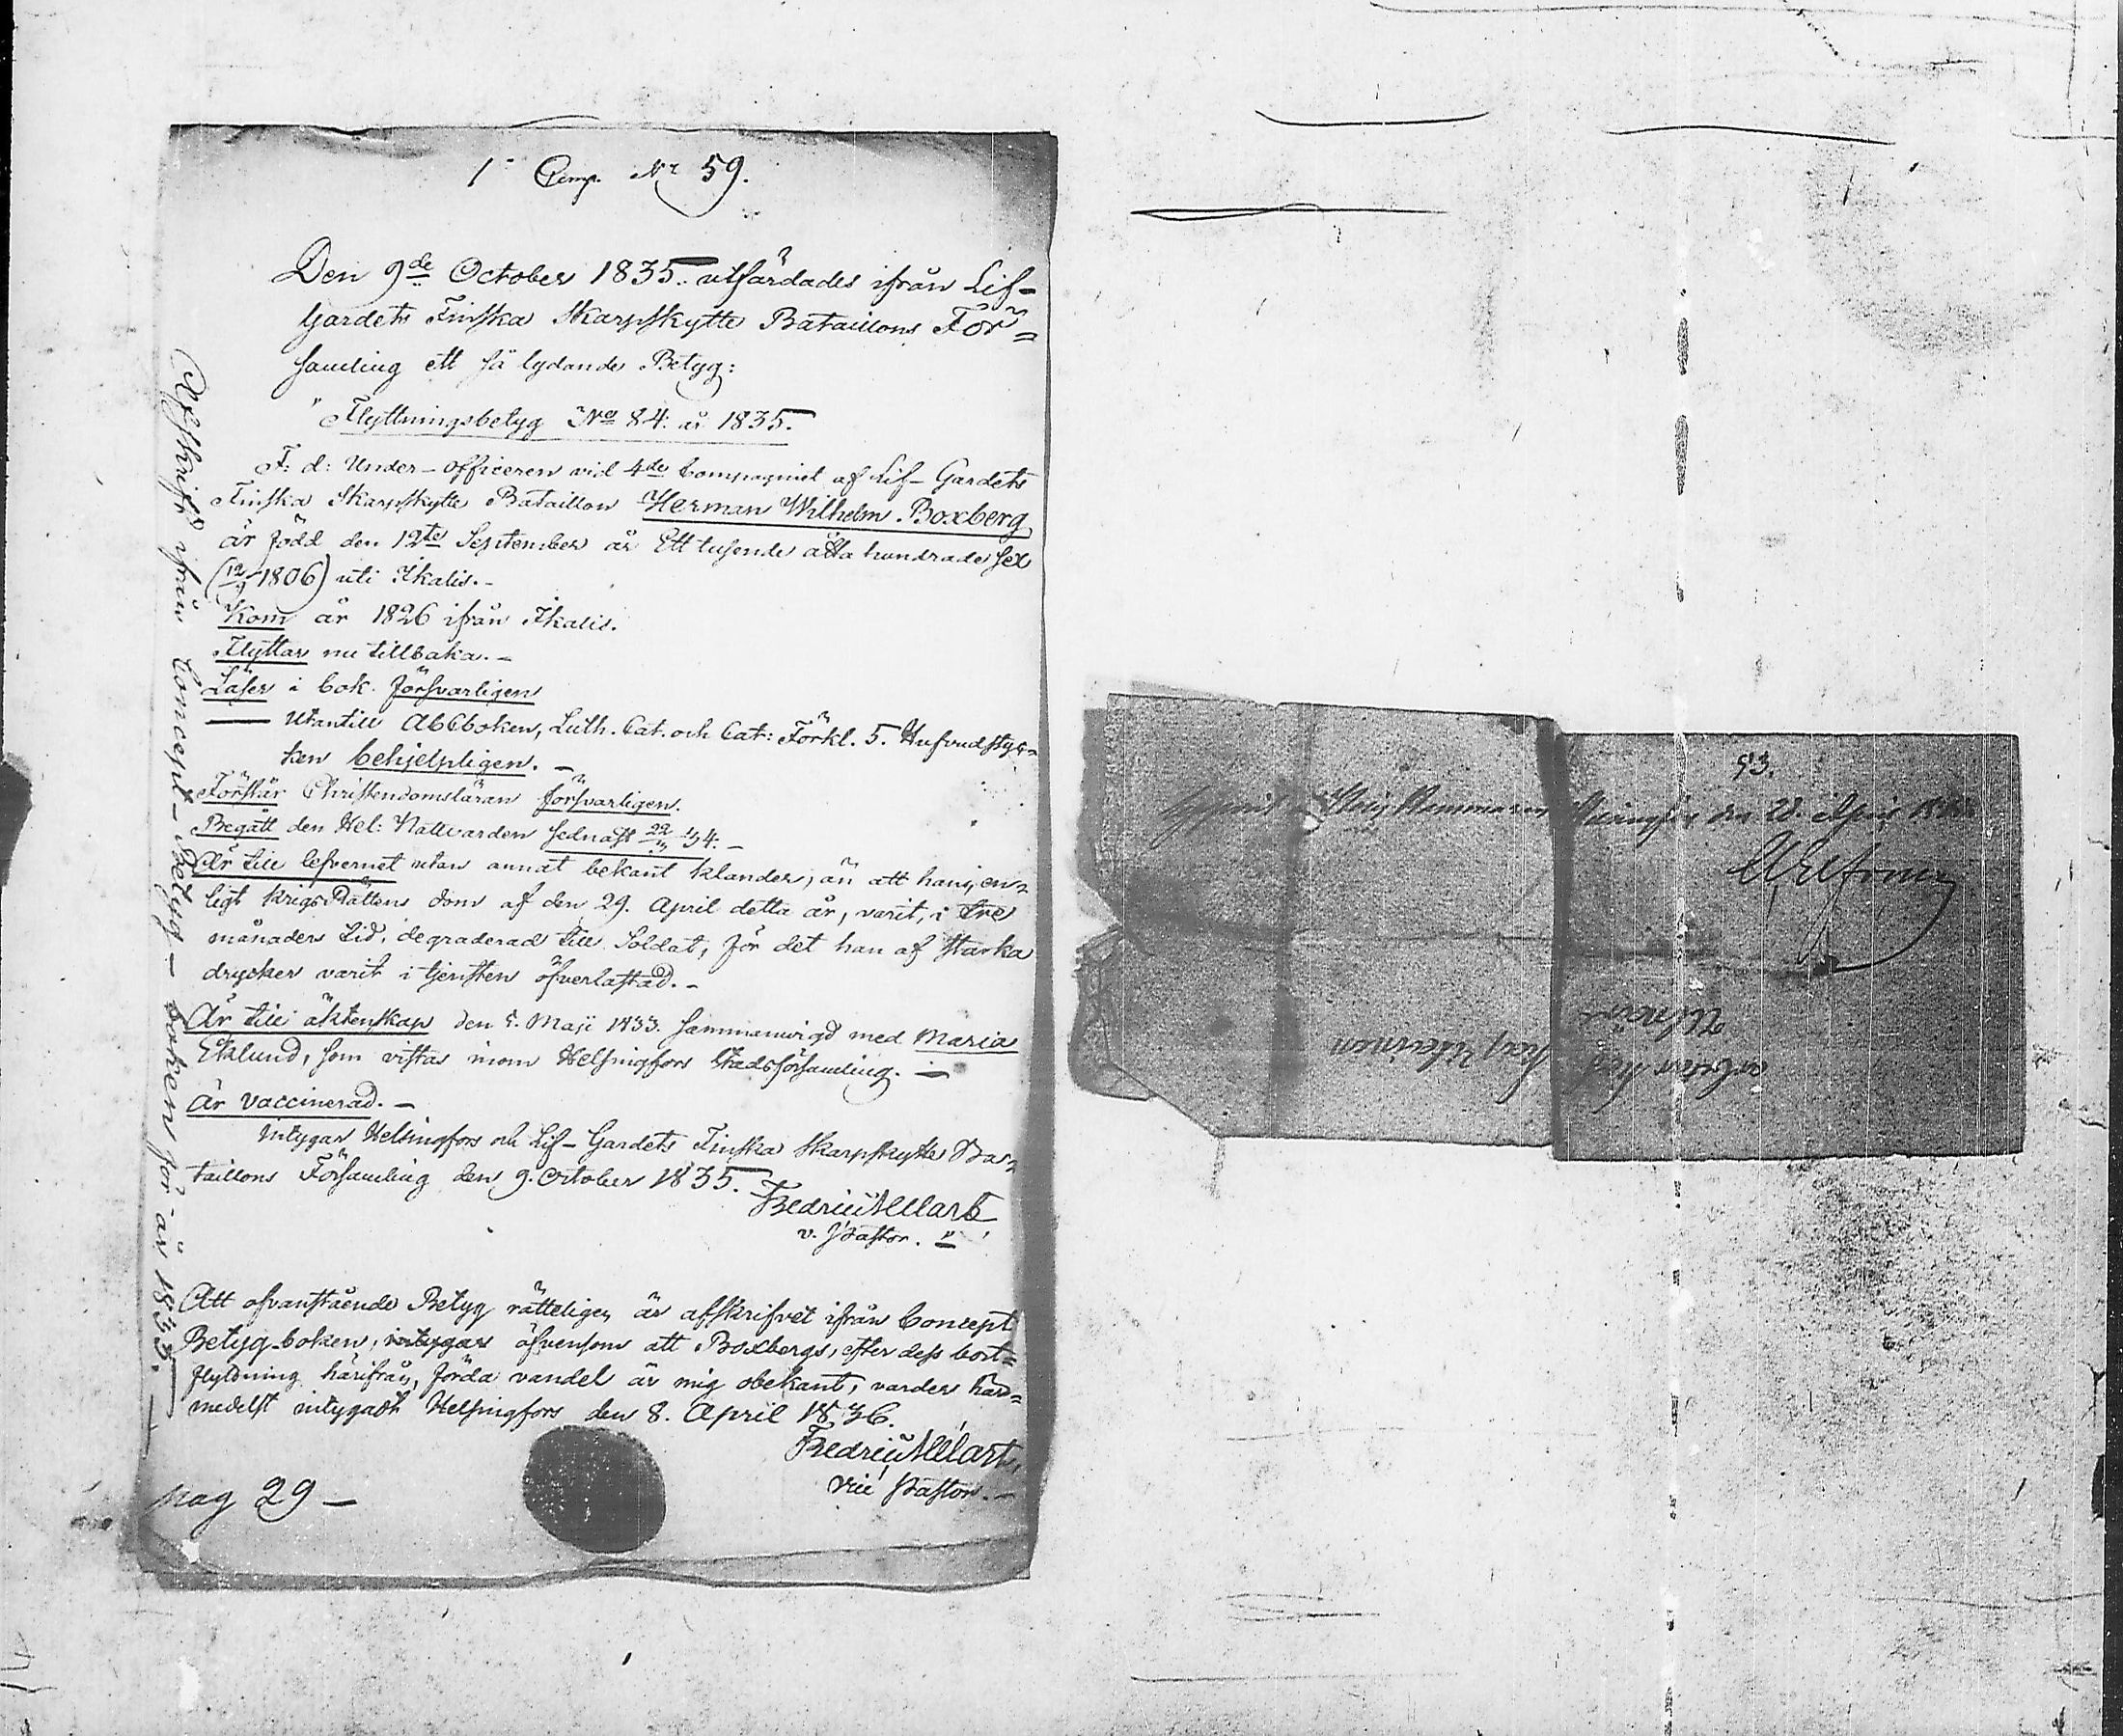 1 Comp. Nr 59.
Den 9de October 1835. utfärdades ifrån Lif-
Gardets Finska Skarpskytte Bataillons För=
samling ett så lydande Betyg:
"Flyttningsbetyg No 84: år 1835.
F: d: Under-officeren vid 4de Compagniet af Lif-Gardets
Finska Skarpskytte Bataillon Herman Wilhelm Boxberg
är född den 12te September år Ett tusende åtta hundrade sex
(12/9 1806) uti Ikalis.-
Kom år 1826 ifrån Ikalis.
Flyttar nu tillbaka.-
Läser i bok försvarligen
— utantill Abcboken, Luth. Cat. och Cat: Förkl. 5. Hufvudstyc=
ken behjelpligen. -
Förstår Christendomsläran försvarligen.
Begått den Hel: Nattvarden sednast 34: -
Är till lefvernet utan annat bekant klander, än att han, en=
ligt KrigsRättens dom af den 29. April detta år, varit, i tre
månaders tid, degraderad till Soldat, för det han af starka
drycker varit i tjensten öfverlastad. -
Är till äktenskap den 5. Maji 1833. sammanvigd med Maria
Eklund, som vistas inom Helsingfors Stadsförsamling. -
Är vaccinerad. -
Intygar Helsingfors och Lif-Gardets Finska Skarpskytte Ba=
taillons Församling den 9. October 1835.
Fredric Mellart
v. Pastor.
Att ofvanstående Betyg rätteligen är afskrifvet ifrån Concept
Betyg-boken, intygar äfvensom att Boxbergs, efter dess bort=
flyttning härifrån, förda vandel är mig obekant, varder här=
medelst intygadt Helsingfors den 8. April 1836.
Fredric Mellart,
vice Pastor. -
pag 29 -
Afskrift ifrån Concept-Betyg-boken för år 1835.
93.
den 28. April